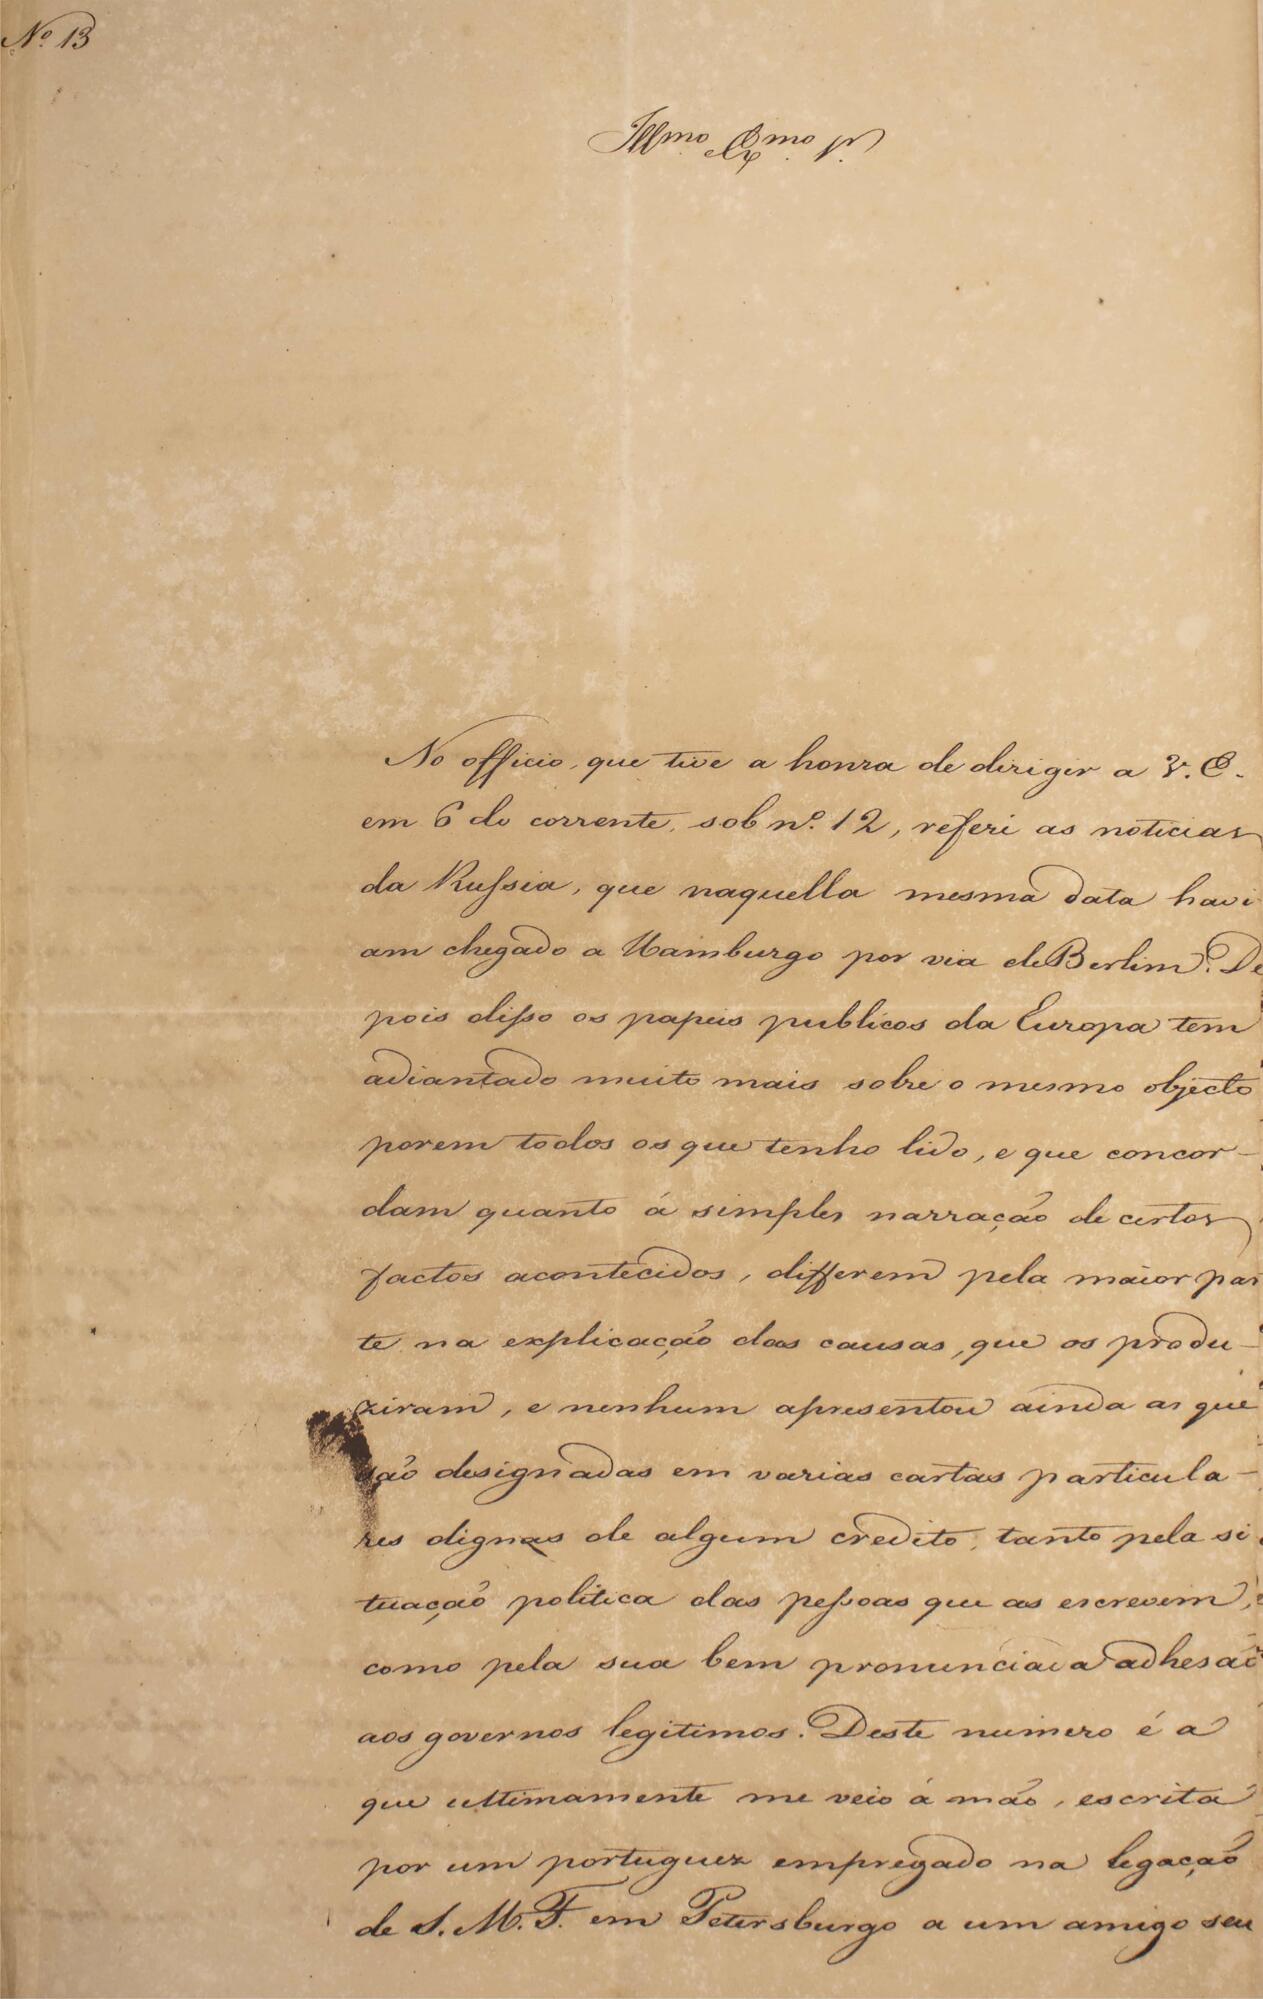 Nº 13
Illmo. Exmo. Sr.
No officio, que tive a honra de dirigir a V. E.
em 6 do corrente, sob nº. 12, referi as noticias
da Russia, que naquella mesma data havi
am chegado a Hamburgo por via de Berlim. De
pois disso os papeis publicos da Europa tem
adiantado muito mais sobre o mesmo objecto
porem todos os que tenho lido, e que concor-
dam quanto á simples narração de certos
factos acontecidos, differem pela maior par
te na explicação das causas, que os produ-
ziram, e nenhum apresentou ainda as que
são designadas em varias cartas particula-
res dignas de algum credito, tanto pela si
tuação politica das pessoas que as escrevem,
como pela sua bem pronunciada adhesão
aos governos legitimos. Deste numero é a
que ultimamente me veio á mão, escrita
por um portuguez empregado na legação
de S. M. F. em Petersburgo a um amigo seu